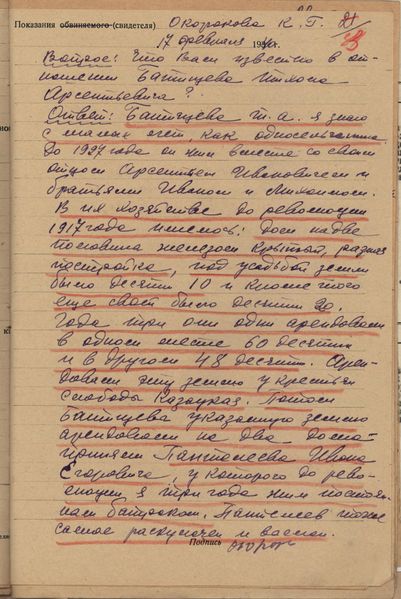 Показания обвиняемого (свидетеля) Окорокова К. Г.
17 февраля 19 г.
Вопрос: Что Вам известно в от-
ношении Батищева Тихона
Арсентьевича?
Ответ: Батищева Т. А. я знаю
с малых лет, как односельчанина.
До 1927 года он жил вместе со своим
отцом Арсентьем Ивановичем и
братьями Иваном и Михаилом.
В их хозяйстве до революции
1917 года имелось: Дом на две
половины железом крытый, разная
постройка, под усадьбой земли
было десятин 10 и кроме того
еще своей было десятин 20.
Года три они одни арендовали
в одном месте 60 десятин
и в другом 48 десятин. Арен-
довали эту землю у крестьян
слободы Казацкая. Потом
Батищева указанную землю
арендовали на два домо-
хозяина Ивана
Егоровича, у которого до рево-
люции я три года жил постоян-
ным батраком. тоже
самое раскулачен и выслан.
Подпись